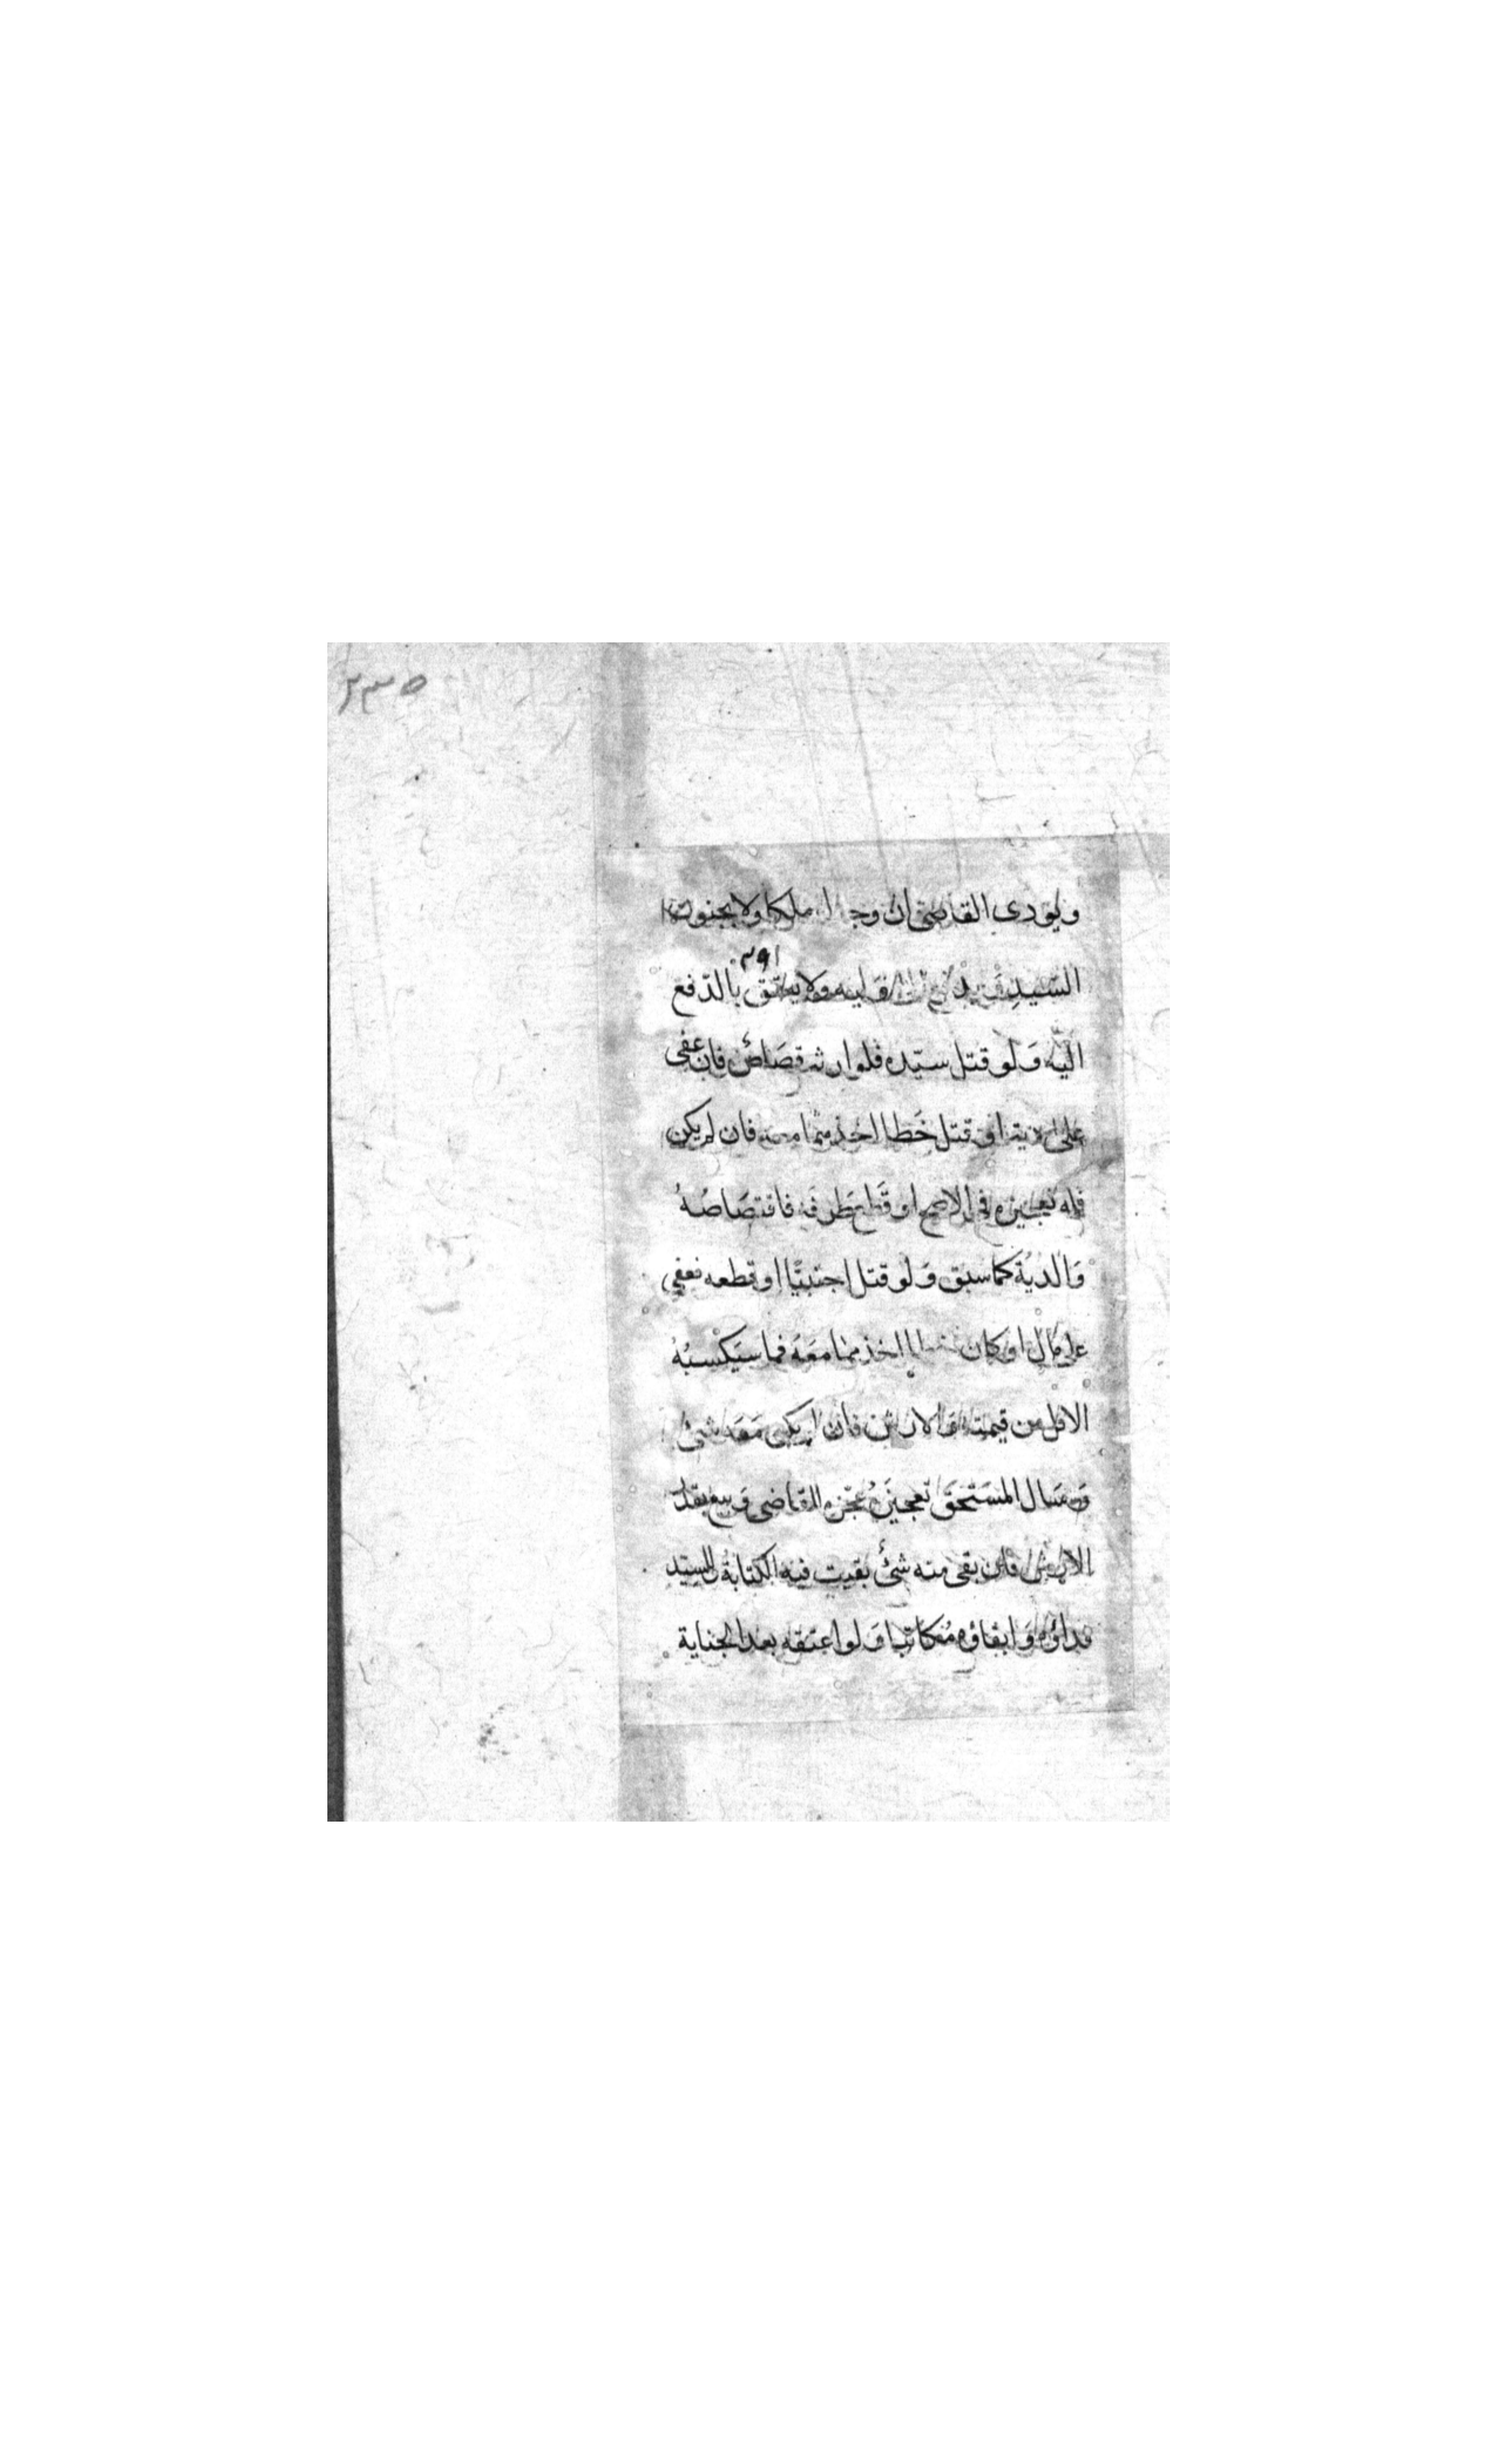 ٢٣٥
ويودى القاضى ان وجد له ملكا ولا بجنون
٣٩١
السيد ولا يعتق بالدفع
اليه وَلو قتل سيّده فلوارثه قصَاصٌ فان عفى
على دية او قتل خَطا اخذ مما معه فان لم يكن
فله تعجيزه فى الاصح او قَطع طَرفَه فاقتصَاصُهُ
وَالديُة كما سبق وَلو قتل اجنبيًّا او قطعه فعفى
على مَال او كان خطا اخذ مما معَهَ مما سَيَكْسبُهُ
الاقل من قيمته وَالارش فان لم يكن مَعَه شىٌ
وَسَال المسَتحقَ تعجيزَهُ عجّزه القاضى وَبيع بقدر
الارش فان بقى منه شىٌ بقيت فيه الكتابةُ وللسيّد
فداؤه وَابقاؤه مُكاتبا وَلو اعتقه بعد الجناية